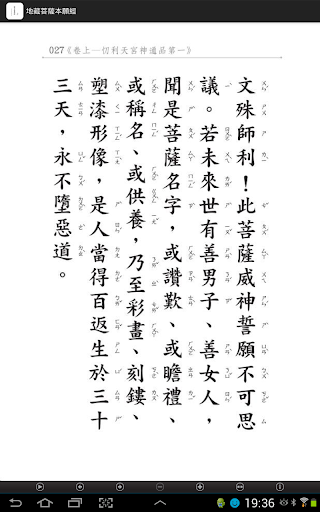 地藏菩薩本願經
027《卷上─忉利天宮神通品第一》
文殊師利！此菩薩威神誓願不可思
議。若未來世有善男子、善女人，
聞是菩薩名字，或讚歎、或瞻禮、
或稱名、或供養，乃至彩畫、刻鏤、
塑漆形像，是人當得百返生於三十
三天，永不墮惡道。
19:36